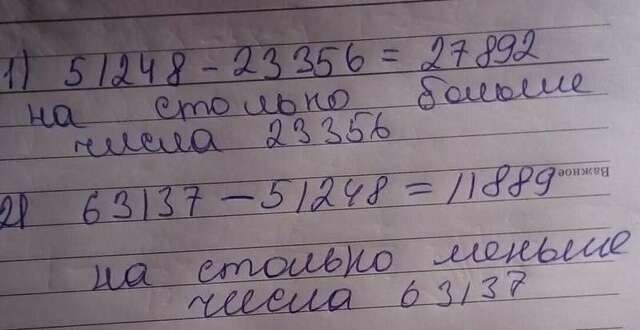 1) 51248 - 23356 = 27892
на столько больше
числа 23356
Важное
2) 63137 - 51248 = 11889
на столько меньше
числа 63137